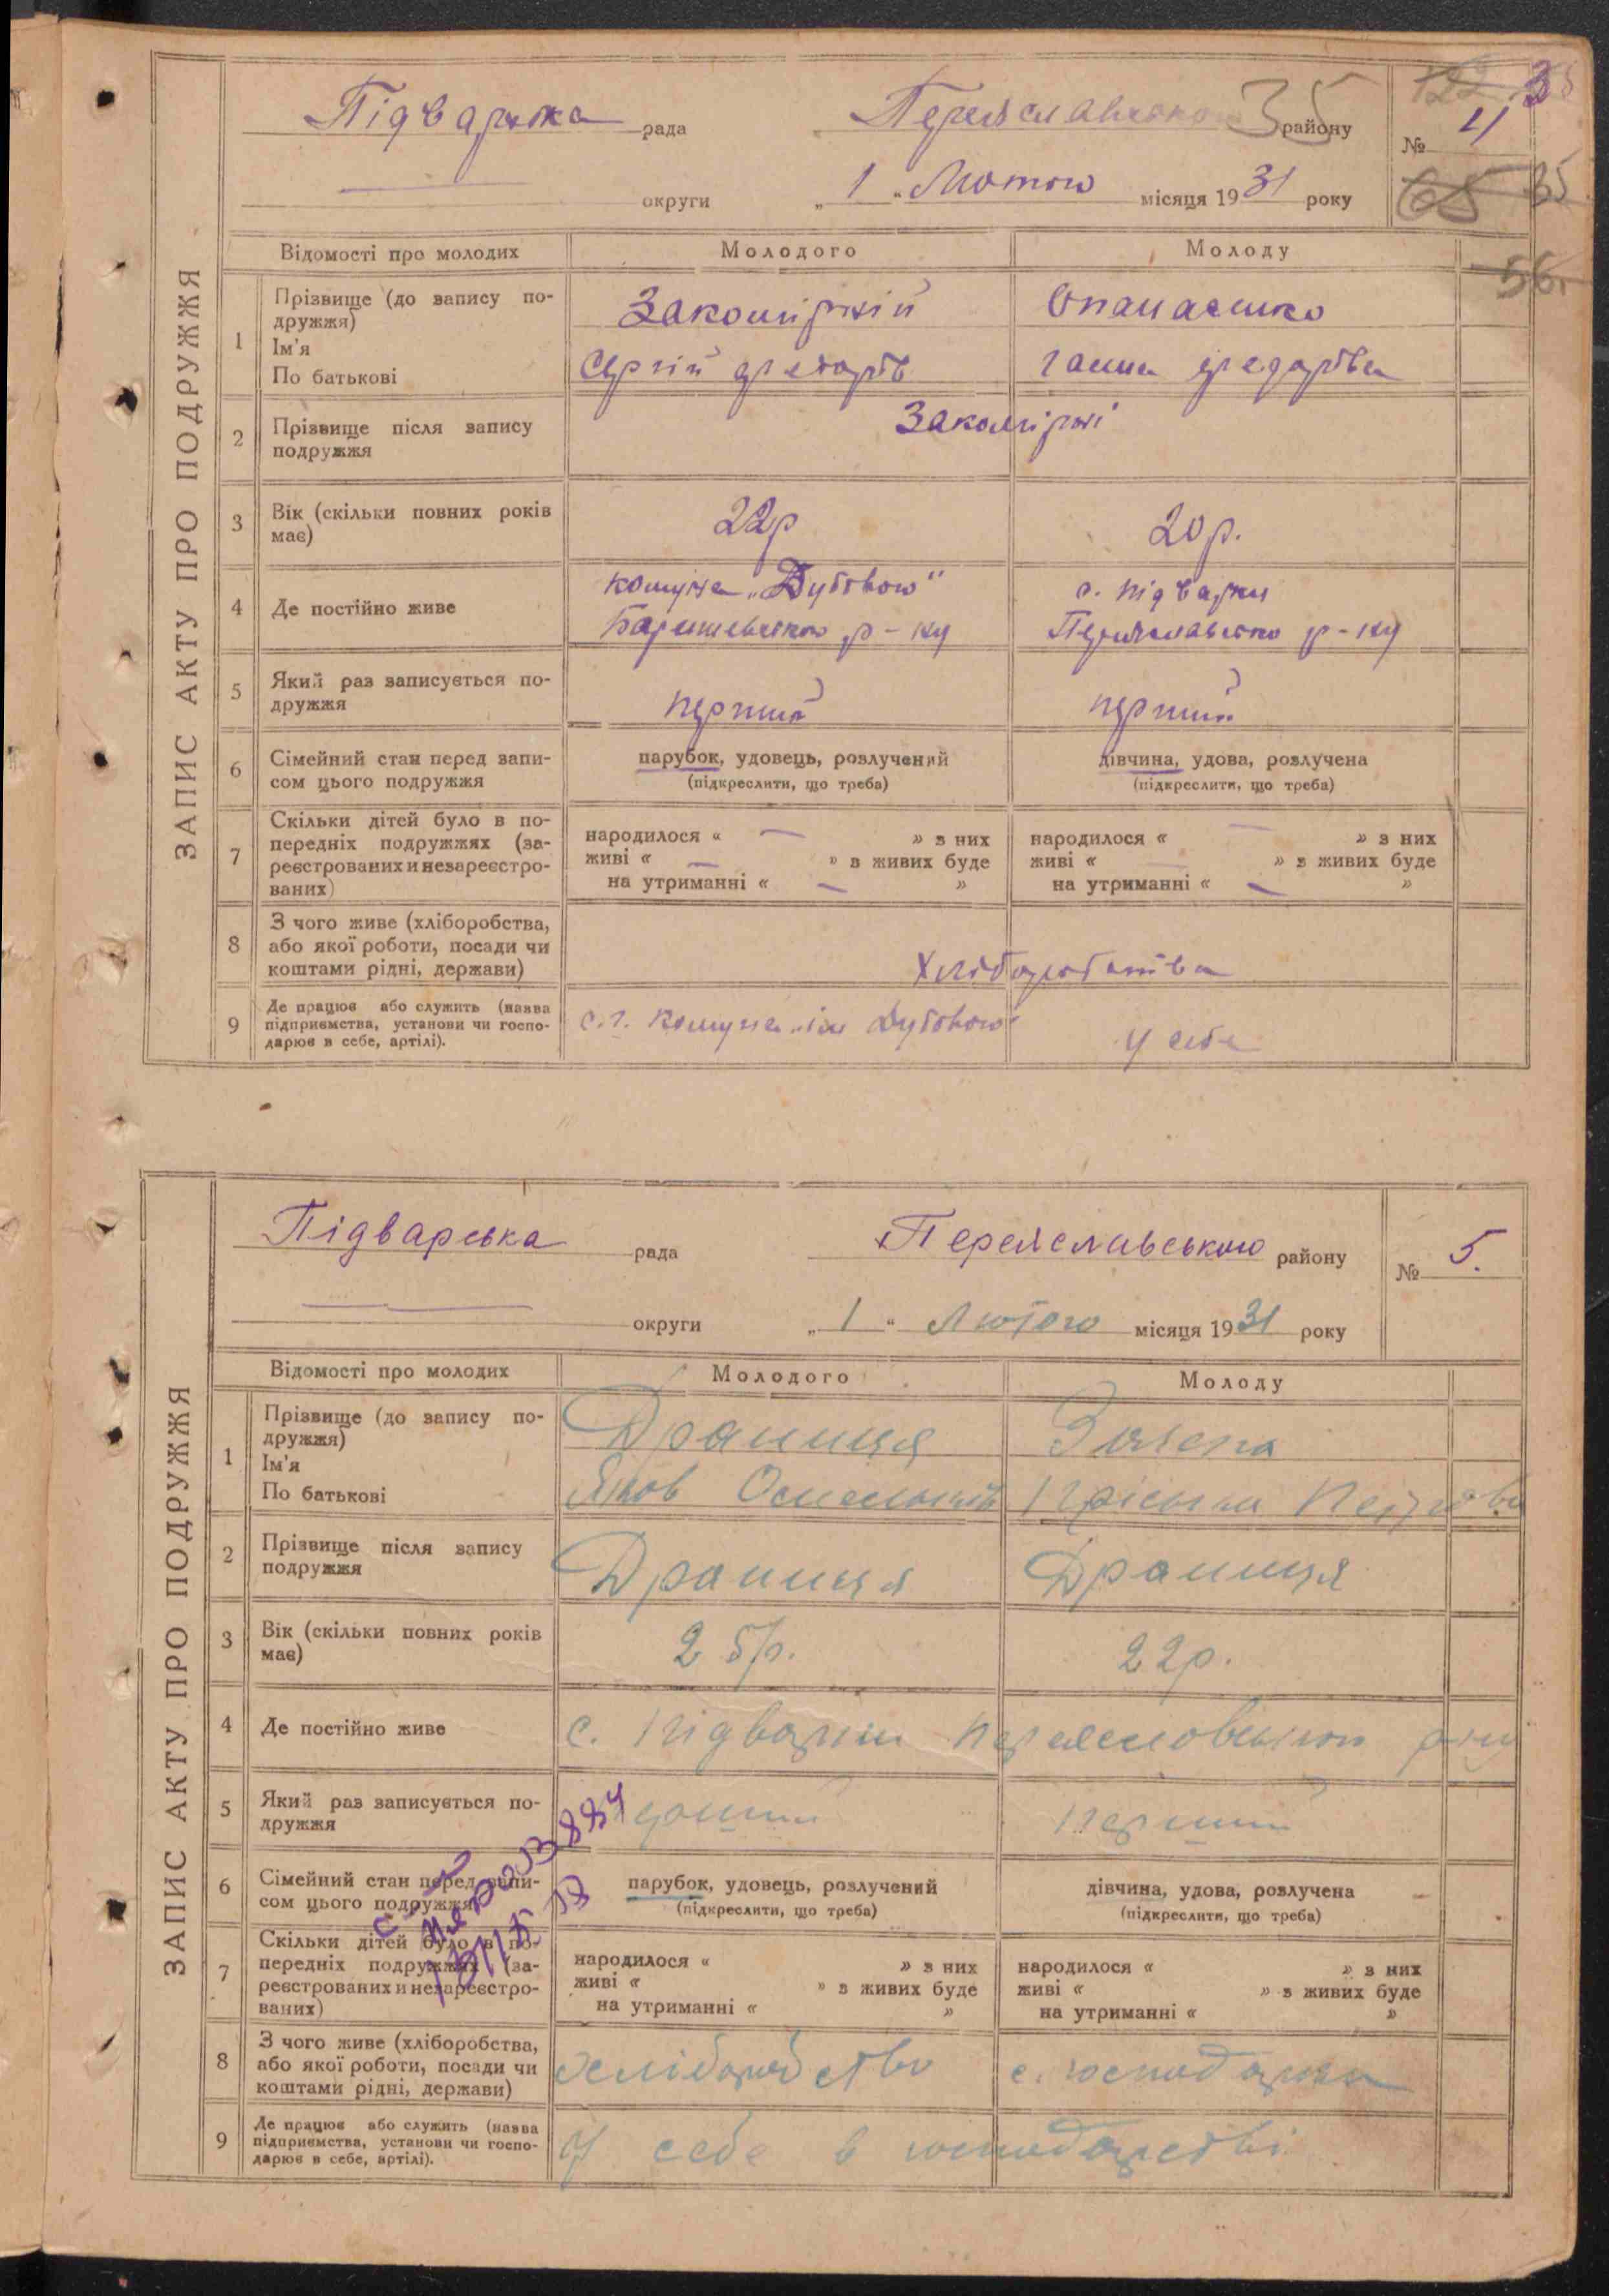 ЗАПИС АКТУ ПРО ПОДРУЖЖЯ
Підварська рада
Переяславсько району
35
№ 4
округи
„ 1 “ Лютого місяця 1931 року
65 35
56
Відомості про молодих Молодого Молоду
1 Прізвище (до запису по-
дружжя)
Ім'я
По батькові
Закоміржій Опанасенко
Сергій Ганна
2 Прізвище після запису
подружжя
Закоміржі
3 Вік (скільки повних років
має)
22р 20р.
4 Де постійно живе
комуна „Дутовою“ с. Підварки
Баришевського р-ну Переяславсько р-ну
5 Який раз записується по-
дружжя
перший перший
6 Сімейний стан перед запи-
сом цього подружжя
парубок, удовець, розлучений
(підкреслити, що треба)
дівчина, удова, розлучена
(підкреслити, що треба)
7 Скільки дітей було в по-
передніх подружжях (за-
реєстрованих и незареєстро-
ваних)
народилося « — » з них
живі « — » з живих буде
на утриманні « — »
народилося « — » з них
живі « — » з живих буде
на утриманні « — »
8 З чого живе (хліборобства,
або якої роботи, посади чи
коштами рідні, держави)
Хліборобства
9 Де працює або служить (назва
підприємства, установи чи госпо-
дарює в себе, артілі).
с.г. комуна ім Дутового у себе
ЗАПИС АКТУ ПРО ПОДРУЖЖЯ
Підварська рада
Переяславського району
№ 5.
округи
„ 1 “ Лютого місяця 1931 року
Відомості про молодих Молодого Молоду
1 Прізвище (до запису по-
дружжя)
Ім'я
По батькові
Драниця
Яков Петрова
2 Прізвище після запису
подружжя
Драниця Драниця
3 Вік (скільки повних років
має)
25р. 22р.
4 Де постійно живе
с. Підварки Переяславського р-ну
5 Який раз записується по-
дружжя
перший перший
6 Сімейний стан перед запи-
сом цього подружжя
парубок, удовець, розлучений
(підкреслити, що треба)
дівчина, удова, розлучена
(підкреслити, що треба)
7 Скільки дітей було в по-
передніх подружжях (за-
реєстрованих и незареєстро-
ваних)
народилося « » з них
живі « » з живих буде
на утриманні « »
народилося « » з них
живі « » з живих буде
на утриманні « »
8 З чого живе (хліборобства,
або якої роботи, посади чи
коштами рідні, держави)
хліборобство с. господарка
9 Де працює або служить (назва
підприємства, установи чи госпо-
дарює в себе, артілі).
У себе в господарстві